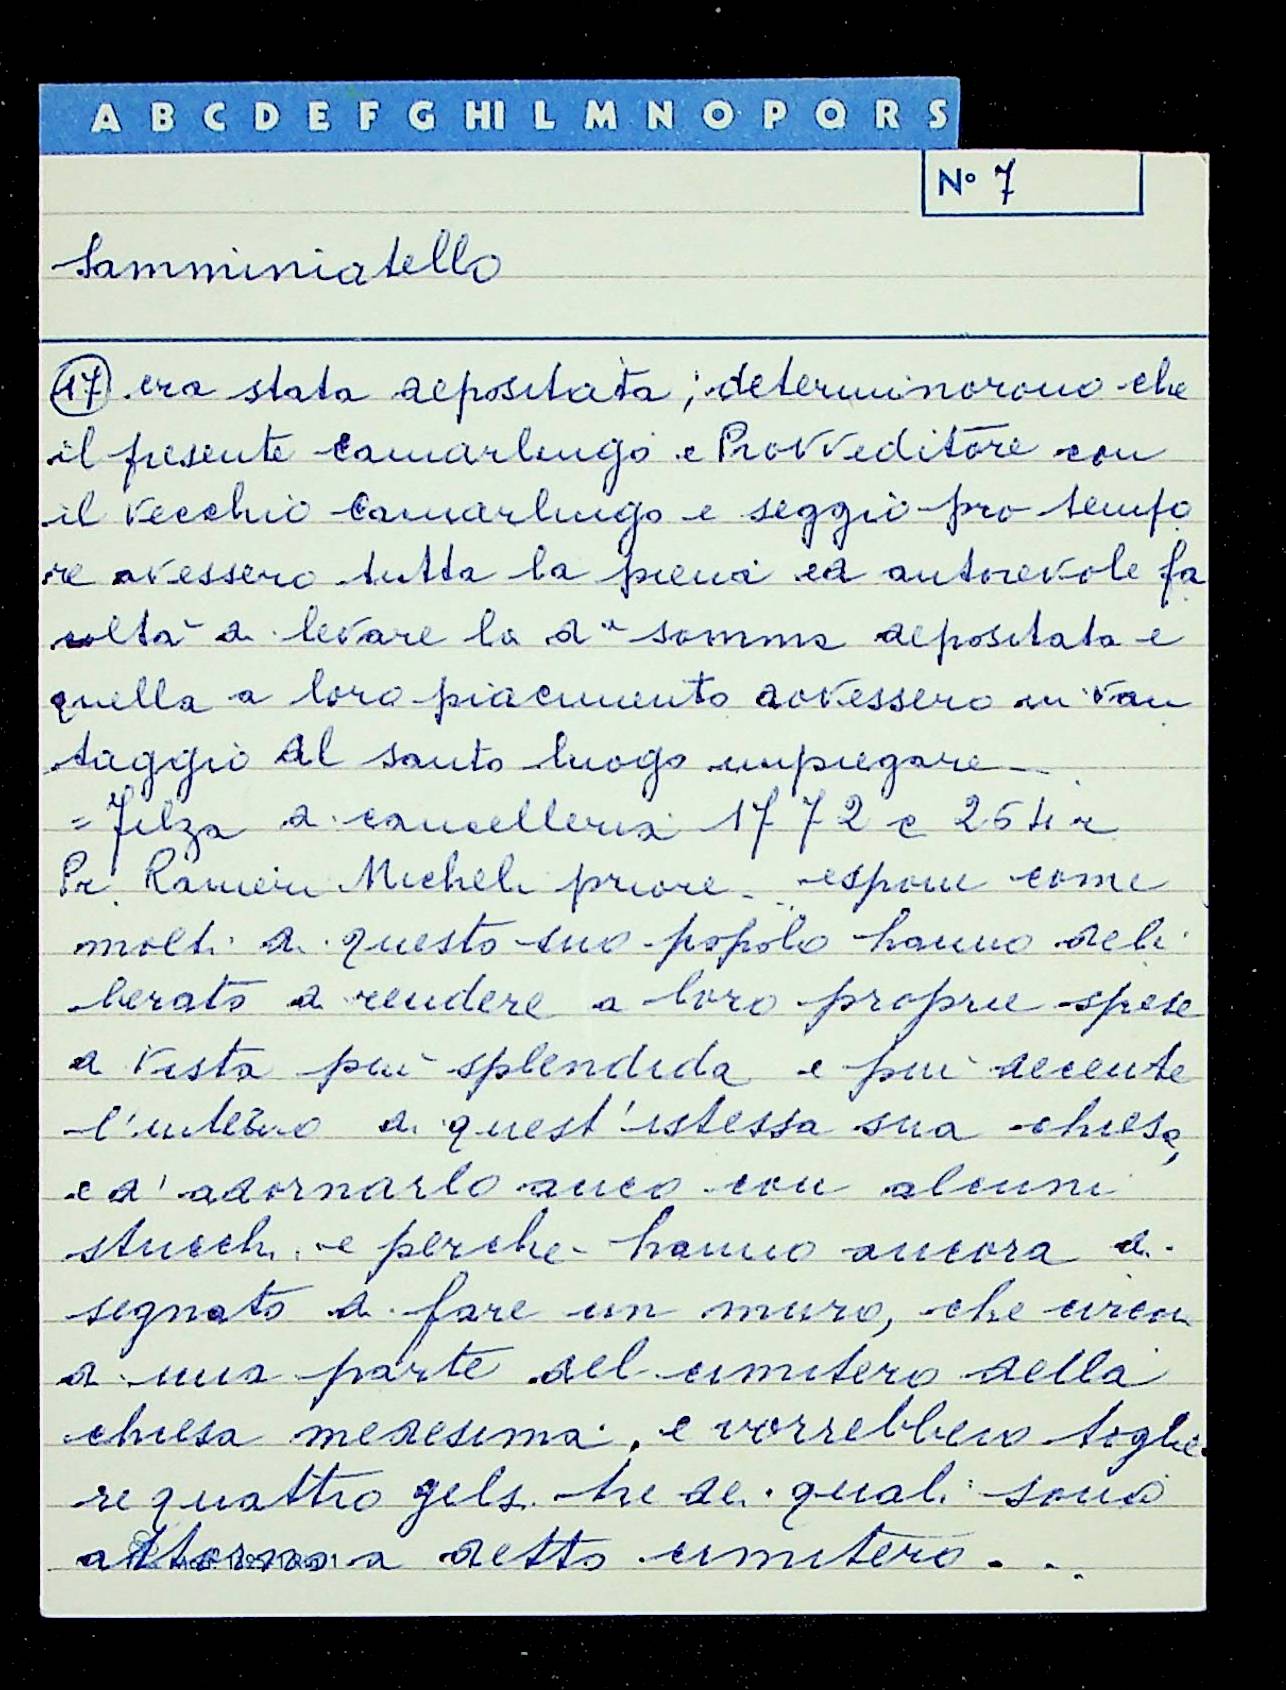 A B C D E F G HI L M N O P Q R S
N° 7
Samminiatello
17 era stata depositata; determinorono che
il presente Camarlingo e Provveditore con
il vecchio Camarlingo e seggio pro tempo
re avessero tutta la piena ed autorevole fa
coltà di levare la da somma depositata e
quella a loro piacimento dovessero in van
taggio del santo luogo impiegare
= Filza di cancelleria 1772 c 26
Pr. Ranieri Micheli priore espone come
molti di questo suo popolo hanno deli
berato di rendere a loro proprie spese
a vista più splendida e più decente
l'interno di quest'istessa sua chiesa,
e d'adornarlo anco con alcuni
stucchi e perche hanno ancora di
segnato di fare un muro, che circon
di una parte del cimitero della
chiesa medesima, e vorrebbero toglie
re quattro gelsi tre dei quali sono
attorno a detto cimitero...